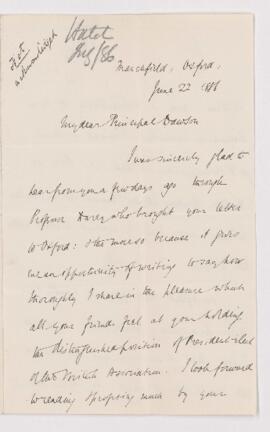 Not
acknowledged
July/86
Oxford,
June 22 1886
My dear Principal Dawson
I was sincerely glad to
hear from you a few days ago through
Professor who brought your letter
to Oxford: the more so because it gives
me an opportunity of writing to say how
thoroughly I share in the pleasure which
all your friends feel at your holding
the distinguished position of President-elect
of the British Association. I look forward
to reading & profiting much by your